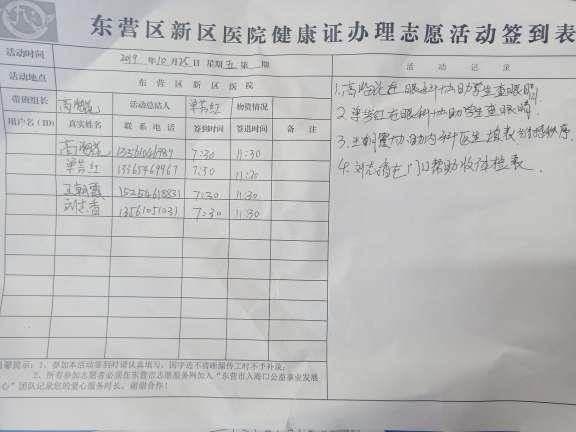 东营区新区医院健康证办理志愿活动签到表
活动时间 2019 年 10 月 25 日 星期 五 第 期
活动记录
活动地点 东营区新区医院
带班组长 活动总结人 单芳红 物资情况
用户名(ID) 真实姓名 联系电话 签到时间 签退时间 备注
13561046989 7:30 11:30
单芳红 13365469967 7:30 11:30
王朝霞 15254618831 7:30 11:30
刘志香 13561051031 7:30 11:30
在眼科协助学生查眼睛.
2 单芳红在眼科协助学生查眼睛.
3.王朝霞 协助内科医生填表 维持秩序
4.刘志香在门口帮助收体检表.
温馨提示:1、参加本活动签到时请认真填写,因字迹不清晰漏传工时不予补录;
2、所有参加志愿者必须在东营市志愿服务网加入“东营市入海口公益事业发展
心”团队记录您的爱心服务时长。谢谢合作!